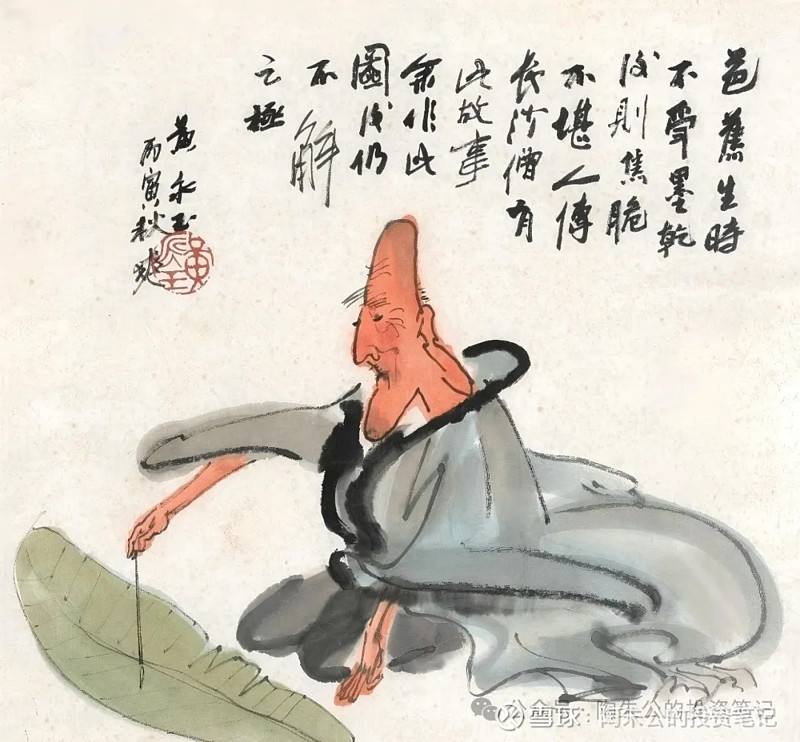 芭蕉生時
不受墨乾
後則焦脆
不堪人傳
長沙僧有
此故事
余作此
圖後仍
不解
之極
黃永玉
丙寅秋
雪球:陶朱公的投资笔记